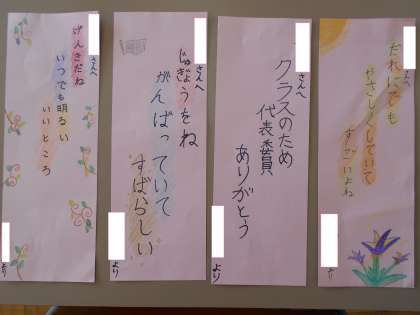 さんへ
だれにでも
やさしくしていて
すごいよね
より
さんへ
クラスのため
代表委員
ありがとう
より
さんへ
じゅぎょうをね
がんばっていて
すばらしい
より
さんへ
げんきだね
いつでも明るい
いいところ
より